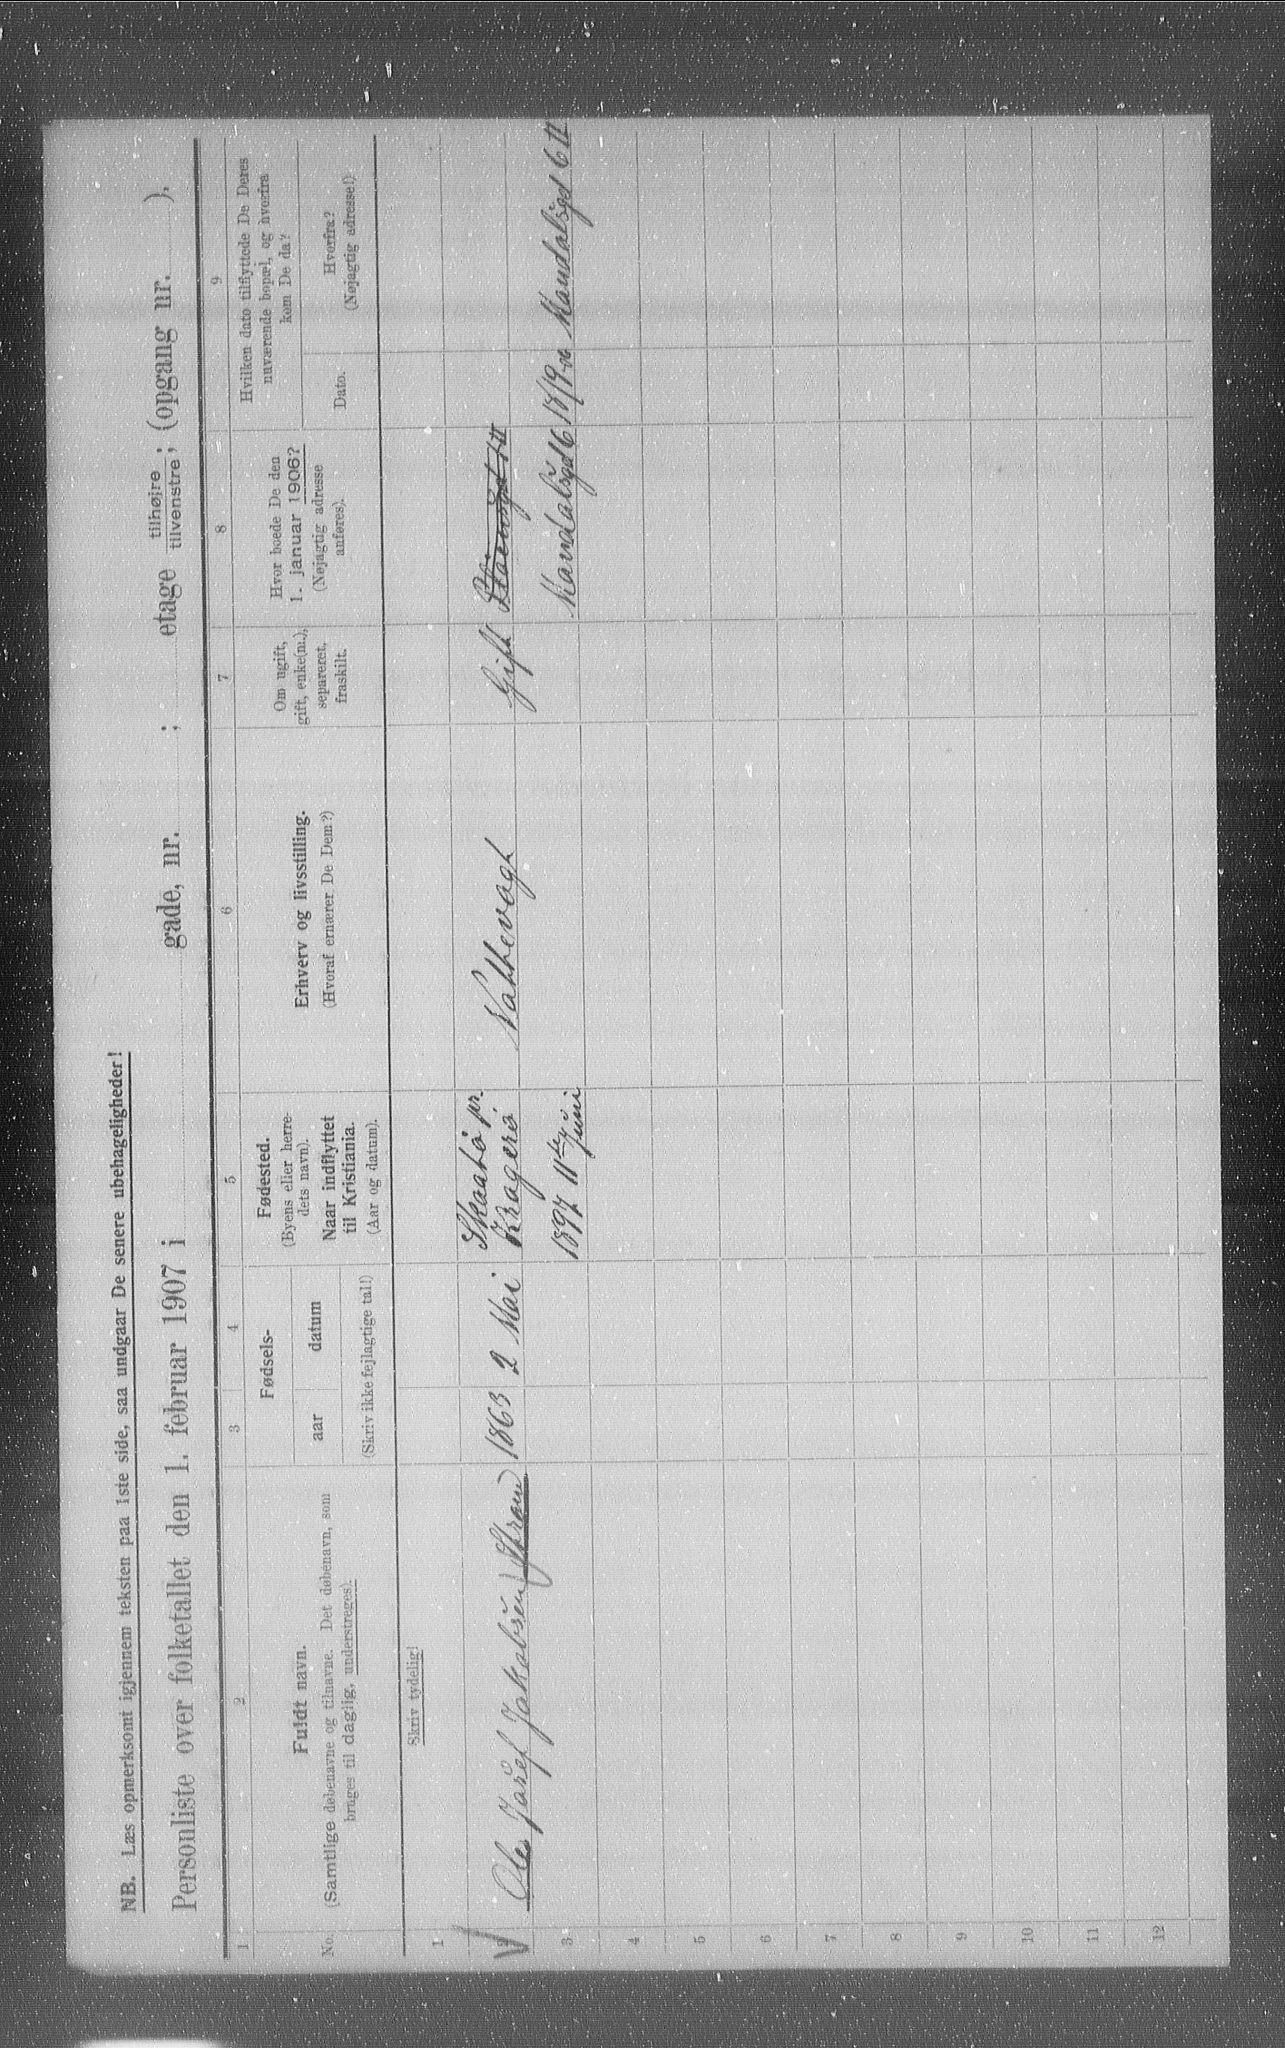 NB. Læs opmerksomt igjennem teksten paa 1ste side, saa undgaar De senere ubehageligheder!
Personliste over folketallet den 1. februar 1907 i gade, nr. ; etage tilhøjre / tilvenstre; (opgang nr. ).
1 2 3 4 5 6 7 8 9
No.
Fuldt navn.
(Samtlige døbenavne og tilnavne. Det døbenavn, som
bruges til daglig, understreges).
Fødsels-
aar
datum
(Skriv ikke fejlagtige tal!)
Fødested.
(Byens eller herre-
dets navn).
Naar indflyttet
til Kristiania.
(Aar og datum).
Erhverv og livsstilling.
(Hvoraf ernærer De Dem?)
Om ugift,
gift, enke(m.),
separeret,
fraskilt.
Hvor boede De den
1. januar 1906?
(Nøjagtig adresse
anføres).
Hvilken dato tilflyttede De Deres
nuværende bopæl, og hvorfra
kom De da?
Dato.
Hvorfra?
(Nøjagtig adresse!)
Skriv tydelig!
1
2 Ole Josef Jakobsen 1863 2 Mai Skaatø pr Kragerø Nattevagt Gift
3 1897 11te Juni Mandalsgd 6 18/9-06 Mandalsgd 6 II
4
5
6
7
8
9
10
11
12